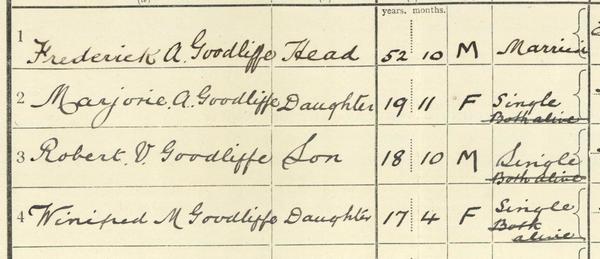 years. months.
1 Frederick A. Goodliffe Head 52 10 M Married
2 Marjorie. A. Goodliffe Daughter 19 11 F Single
Both alive
3 Robert. V. Goodliffe Son 18 10 M Single
Both alive
4 Winifred M Goodliffe Daughter 17 4 F Single
Both
alive